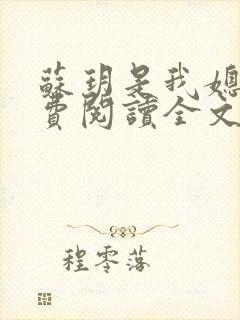 蘇玥是我媳
費閱讀全文
程零落